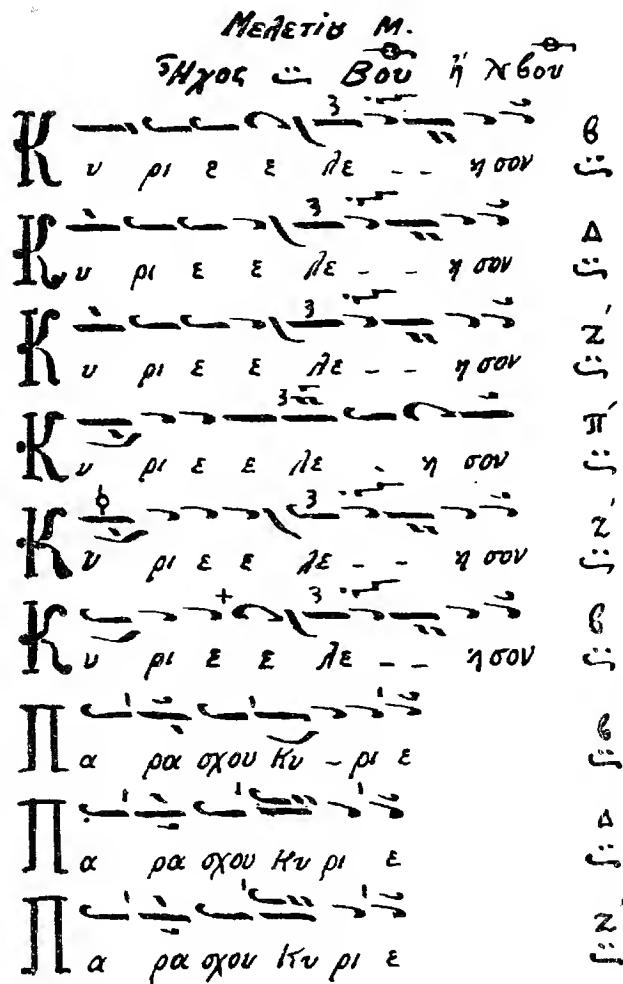 Μελετίου Μ.
Ἦχος Βου ἤ νβου
Κυ ρι ε ε λε - - η σον β
Κυ ρι ε ε λε - - η σον Δ
Κυ ρι ε ε λε - - η σον Ζ΄
Κυ ρι ε ε λε - η σον Π΄
Κυ ρι ε ε λε - - η σον Ζ΄
Κυ ρι ε ε λε - - η σον β
Πα ρα σχου Κυ - ρι ε β
Πα ρα σχου Κυ ρι ε Δ
Πα ρα σχου Κυ ρι ε Ζ΄